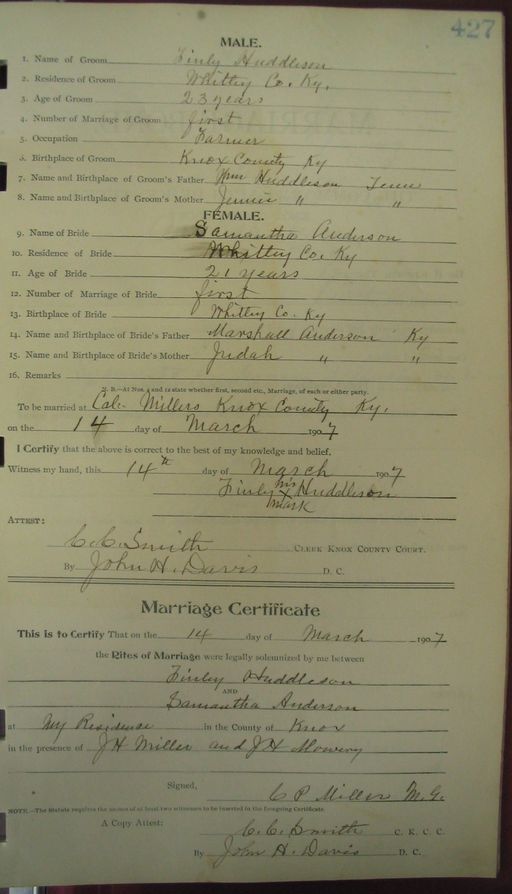 427
MALE.
1. Name of Groom Finly Huddleson
2. Residence of Groom Whitley Co. Ky.
3. Age of Groom 23 years
4. Number of Marriage of Groom first
5. Occupation Farmer
6. Birthplace of Groom Knox County Ky
7. Name and Birthplace of Groom's Father Wm Huddleson Tenn
8. Name and Birthplace of Groom's Mother Jennie " "
FEMALE.
9. Name of Bride Samantha Anderson
10. Residence of Bride Whitley Co. Ky
11. Age of Bride 21 years
12. Number of Marriage of Bride first
13. Birthplace of Bride Whitley Co. Ky
14. Name and Birthplace of Bride's Father Marshall Anderson Ky
15. Name and Birthplace of Bride's Mother Judah " "
16. Remarks
N. B.—At Nos. 4 and 12 state whether first, second etc., Marriage, of each or either party.
To be married at Cal. Millers Knox County Ky.
on the 14 day of March 1907
I Certify that the above is correct to the best of my knowledge and belief.
Witness my hand, this 14th day of March 1907
his
Finley X Huddleson
mark
ATTEST:
C. C. Smith CLERK KNOX COUNTY COURT.
By John H. Davis D. C.
Marriage Certificate
This is to Certify That on the 14 day of March 1907
the Rites of Marriage were legally solemnized by me between
Finley Huddleson
AND
Samantha Anderson
at My Residence in the County of Knox
in the presence of J H Miller and J H Mowery
Signed, C P Miller M. G.
NOTE.—The Statute requires the names of at least two witnesses to be inserted in the foregoing Certificate.
A Copy Attest: C. C. Smith C. K. C. C.
By John H. Davis D. C.